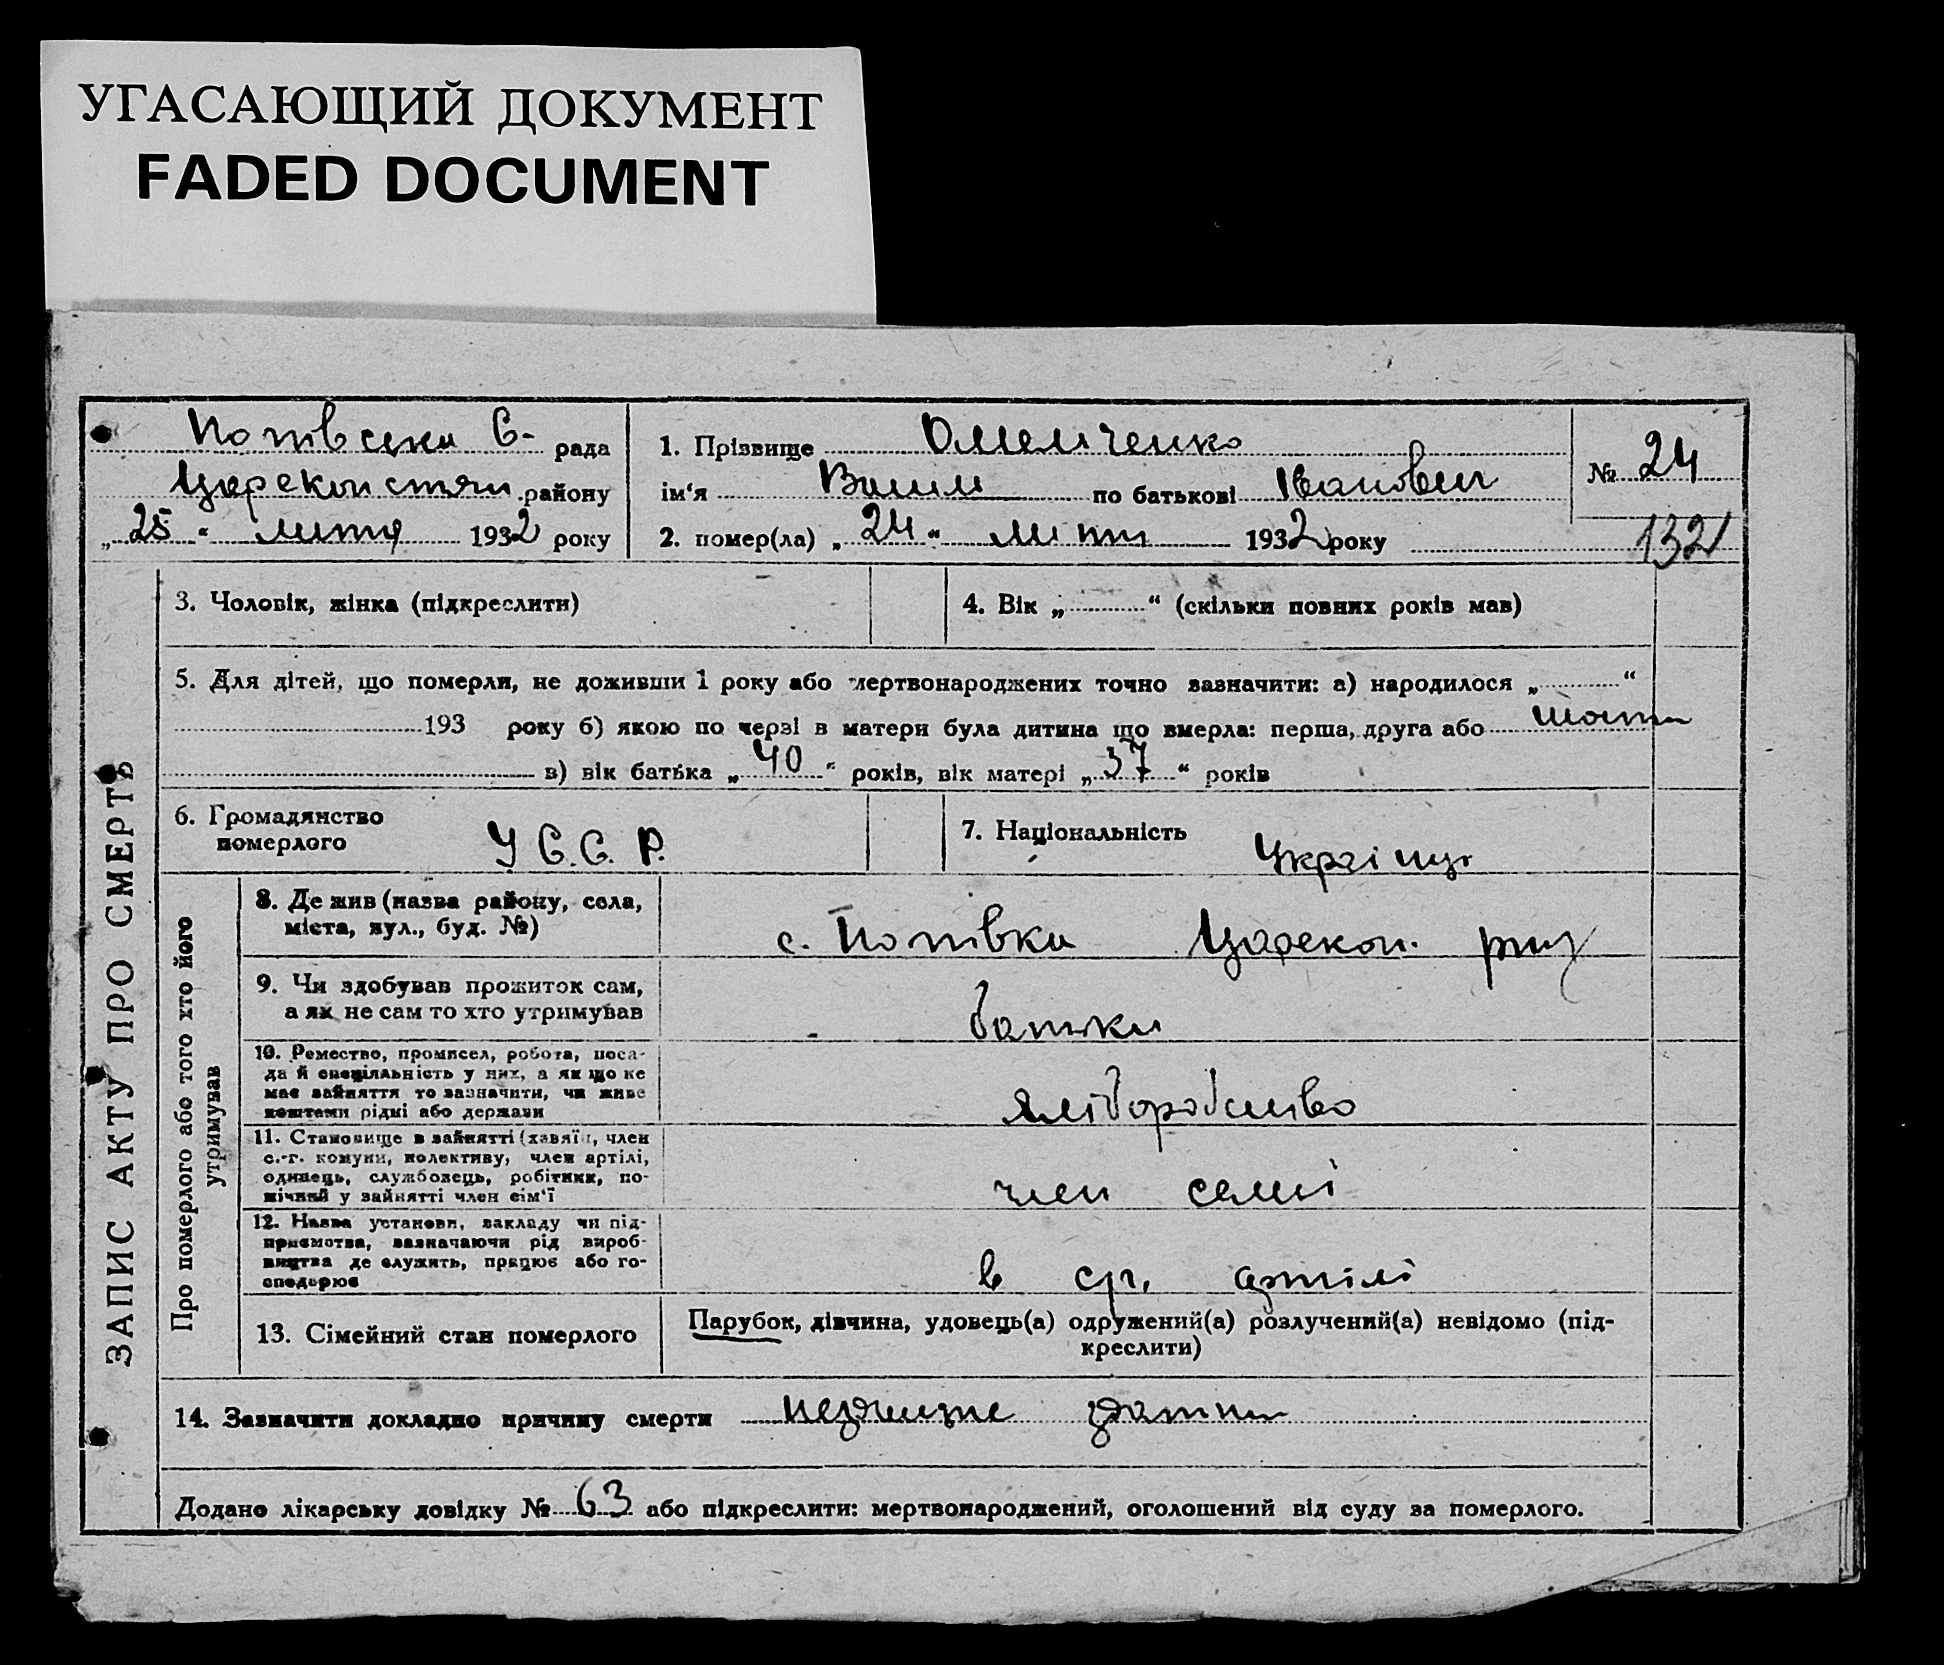 УГАСАЮЩИЙ ДОКУМЕНТ
FADED DOCUMENT
Попівська С- рада
Царекон района
"25" 1932 року
1. Прізвище Омельченко
ім'я по батькові Іванович
2. помер(ла) "24" 1932 року
№ 24
132
ЗАПИС АКТУ ПРО СМЕРТЬ
3. Чоловік, жінка (підкреслити)
4. Вік „ “ (скільки повних років мав)
5. Для дітей, що померли, не доживши 1 року або мертвонароджених точно зазначити: а) народилося „ “
193 року б) якою по черзі в матери була дитина що вмерла: перша, друга або
в) вік батька „40“ років, вік матері „37“ років
6. Громадянство
померлого У.С.С.Р.
7. Національність
Про померлого або того хто його
утримував
8. Де жив (назва району, села,
міста, вул., буд. №)
с. Попівка Царекон.
9. Чи здобував прожиток сам,
а як не сам то хто утримував
батьки
10. Ремество, промисел, робота, поса-
да й спеціяльність у них, а як що не
має зайняття то зазначити, чи живе
коштами рідні або держави
хліборобство
11. Становище в зайнятті (хазяїн, член
с.-г. комуни, колективу, член артілі,
одинець, службовець, робітник, по-
мічний у зайнятті член сім'ї
член семї
12. Назва установи, закладу чи під-
приємства, зазначаючи рід вироб-
ництва де служить, працює або го-
сподарює
в ср. артілі
13. Сімейний стан померлого
Парубок, дівчина, удовець(а) одружений(а) розлучений(а) невідомо (під-
креслити)
14. Зазначити докладно причину смерти
Додано лікарську довідку № 63 або підкреслити: мертвонароджений, оголошений від суду за померлого.